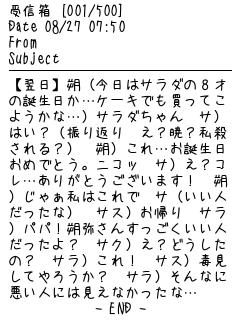 受信箱 [001/500]
Date 08/27 07:50
From
Subject
【翌日】朔（今日はサラダの８才
の誕生日か…ケーキでも買ってこ
ようかな…）サラダちゃん　サ）
はい？（振り返り　え？暁？私殺
される？）　朔）これ…お誕生日
おめでとう。ニコッ　サ）え？コ
レ…ありがとうございます！　朔
）じゃあ私はこれで　サ（いい人
だったな）　サス）お帰り　サラ
）パパ！朔弥さんすっごくいい人
だったよ？　サク）え？どうした
の？　サラ）これ！　サス）毒見
してやろうか？　サラ）そんなに
悪い人には見えなかったな…
- END -